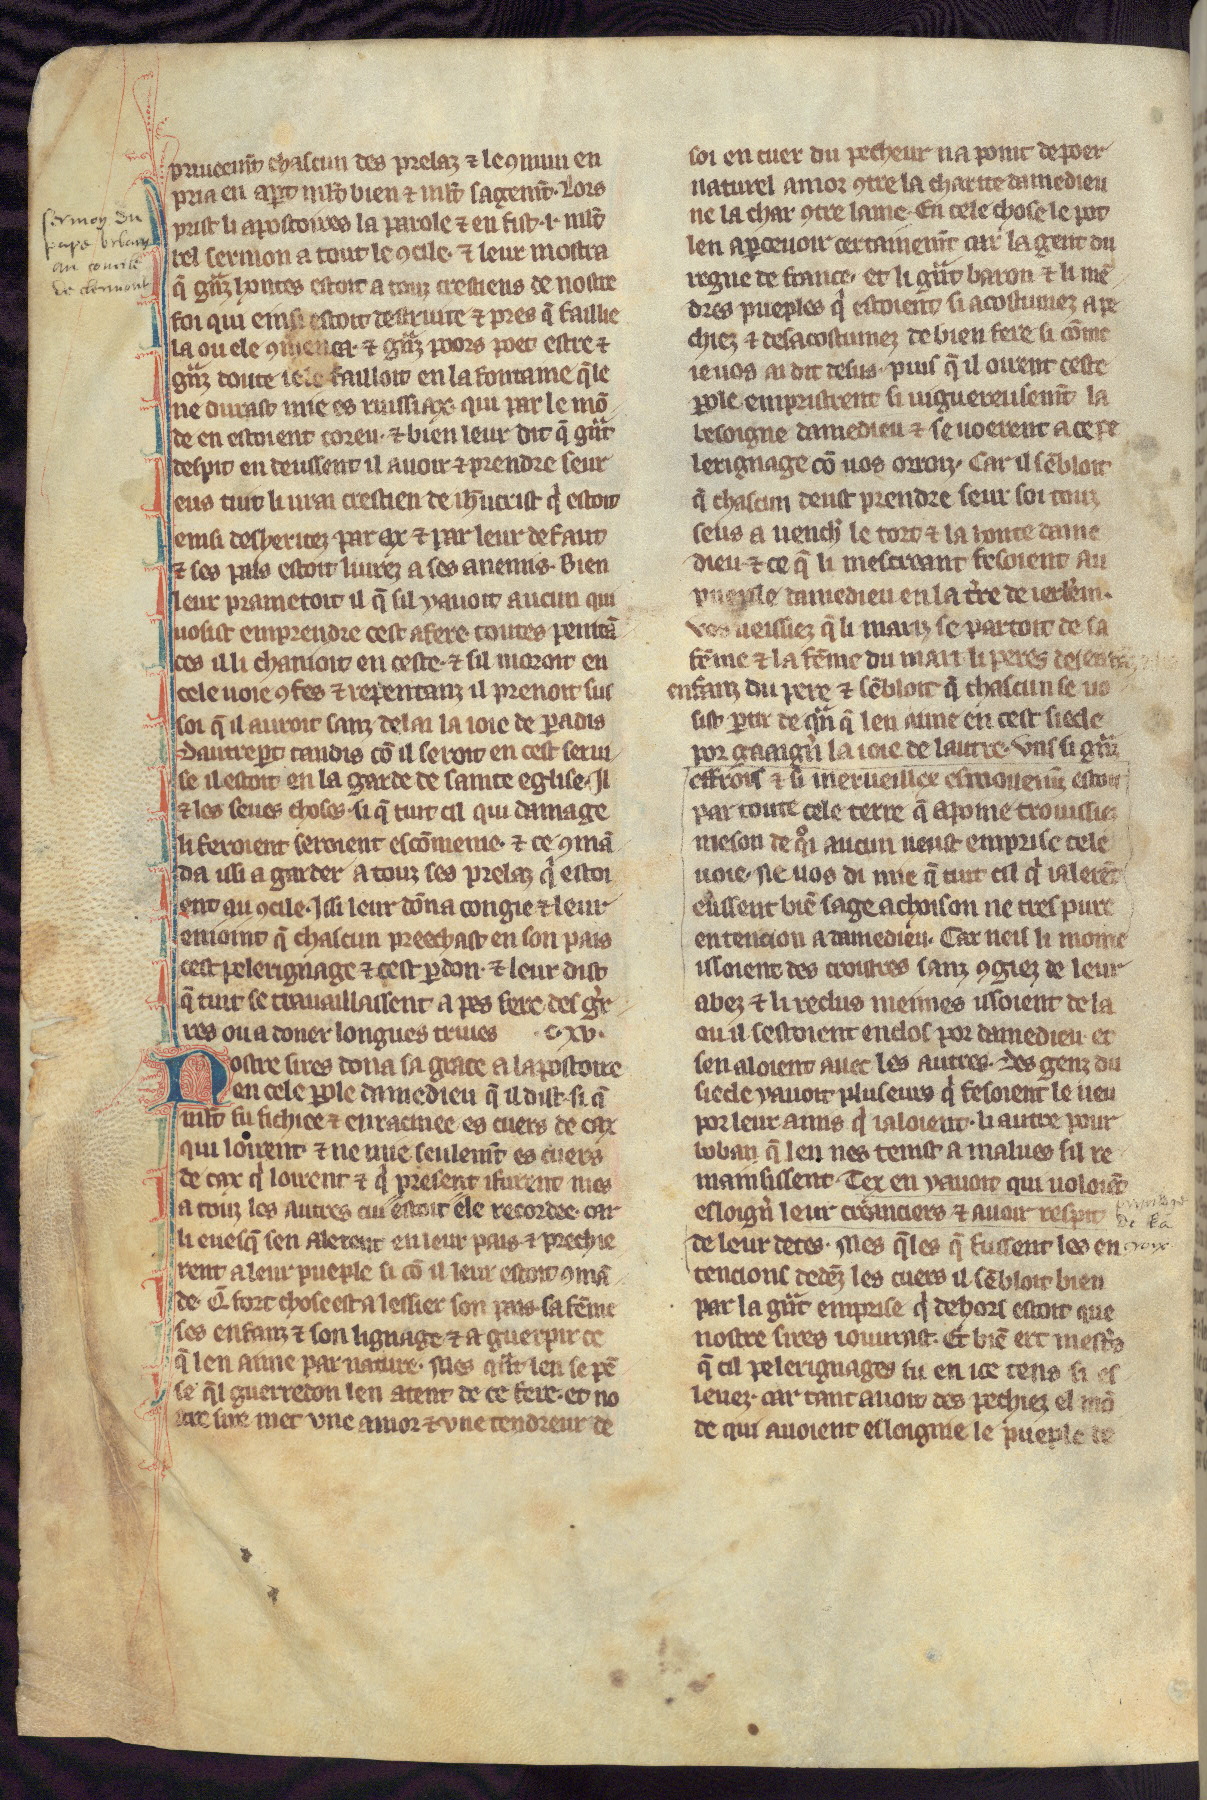 priueemt chascun des prelaz ⁊ le ꝯmun en
pria en apt mlt bien ⁊ mlt sagemt. Lors
prist li apostoires la parole ⁊ en fist .i. mlt
bel sermon a tout le ꝯcile. ⁊ leur mostra
q̃ granz hontes estoit a touz crestiens de nostre
foi qui einsi estoit destruite ⁊ pres q̃ faillie
la ou ele ꝯmenca. ⁊ granz poors poet estre ⁊
granz doute se ele failloit en la fontaine q̃le
ne durast mie es ruissiax. qui par le mõ
de en estoient coreu. ⁊ bien leur dit q̃ grant
despit en deussent il auoir ⁊ prendre seur
eus tuit li urai crestien de ihucrist q̇ estoit
einsi desheritez par ax ⁊ par leur defaut
⁊ ses pais estoit liurez a ses anemis. Bien
leur prametoit il q̃ sil yauoit aucun qui
uosist emprendre cest afere. toutes penitã
ces il li chanioit en ceste. ⁊ sil moroit en
cele uoie ꝯfes ⁊ repentanz il prenoit sus
soi q̃ il auroit sanz delai la ioie de ꝑadis
Dautrept tandis cõ il seroit en cest serui
se il estoit en la garde de sainte eglise. Il
⁊ les seues choses. si q̃ tuit cil qui damage
li feroient seroient escõmenie. ⁊ ce ꝯmã
da issi a garder a touz ses prelaz q̇ estoi
ent au ꝯcile. Issi leur dõna congie ⁊ leur
enioint q̃ chascun preechast en son pais
cest pelerignage ⁊ cest ꝑdon. ⁊ leur dist
q̃ tuit se trauaillassent a pes fere. des gr̃
res ou a doner longues triues . c. xv.
Nostre sires dona sa grace a lapostoire
en cele ꝑole damedieu q̃ il dist. si q̃
mlt fu fichiee ⁊ enracinee es cuers de cax
qui loirent. ⁊ ne mie seulemt es cuers
de cax q̇ loirent ⁊ q̇ present ifurent mes
a touz les autres cui estoit ele recordee. car
li euesq̃ sen alerent en leur pais ⁊ prechie
rent a leur pueple si cõ il leur estoit ꝯmã
de. Q̃ fort chose est a lessier son pais. sa fẽme
ses enfanz ⁊ son lignage ⁊ a guerpir ce
q̃ len aime par nature. Mes qnt len se pẽ
se q̃l guerredon len atent de ce fere. et no
tre sire met vne amor ⁊ vne tendreur de
soi en cuer du pecheur na point de poer
naturel amor ꝯtre la charite damedieu
ne la char ꝯtre lame. En cele chose le pot
len aꝑceuoir certainemt. car la gent du
regne de france. et li grant baron ⁊ li mẽ
dres pueples q̇ estoient si acostumez a pe
chiez ⁊ desacostumez de bien fere si cõme
ie uos ai dit desus. puis q̃ il oirent ceste
ꝑole. empristrent si uiguereusemt la
besoigne damedieu ⁊ se uoerent a ce pe
lerignage cõ uos orroiz. Car il sẽbloit
q̃ chascun deust prendre seur soi touz
seus a uench̃ le tort ⁊ la honte dame
dieu. ⁊ ce q̃ li mescreant fesoient au
pueple damedieu en la tre de ierlem.
Vos ueissiez q̃ li mariz se partoit de sa
fẽme ⁊ la fẽme du mari. li peres des enfãz
enfanz du pere ⁊ sẽbloit q̃ chascun se uo
sist ꝑtir de qñ q̃ len aime en cest siecle
por gaaign̄ la ioie de lautre. Vns si granz
effrois ⁊ si merueillex esmouemt estoit
par toute cele terre q̃ apeine trouissiez
meson de q̇i aucun neust emprise cele
uoie. Ne uos di mie q̃ tuit cil q̇ i alerẽt
eussent biẽ sage achoison ne tres pure
entencion a damedieu. Car neis li moine
issoient des cloistres sanz ꝯgiez de leur
abez ⁊ li reclus meimes issoient de la
ou il sestoient enclos por damedieu. et
sen aloient auec les autres. Des genz du
siecle yauoit pluseurs q̇ fesoient le ueu
por leur amis q̇ i aloient. li autre pour
boban q̃ len nes tenist a malues sil re
mainsissent. Tex en yauoit qui uoloiẽt
esloign̄ leur creanciers ⁊ auoir respit
de leur detes. Mes q̃les q̃ fussent les en
tencions dedẽz les cuers il sẽbloit bien
par la grant emprise q̇ dehors estoit que
nostre sires iouurast. Et biẽ ert mestrs
q̃ cil pelerignages fu en ice tens si es
leuez. car tant auoit des pechiez el mõ
de qui auoient esloignie le pueple de
sermon du
pape urbain
au concile
de clermont
de la